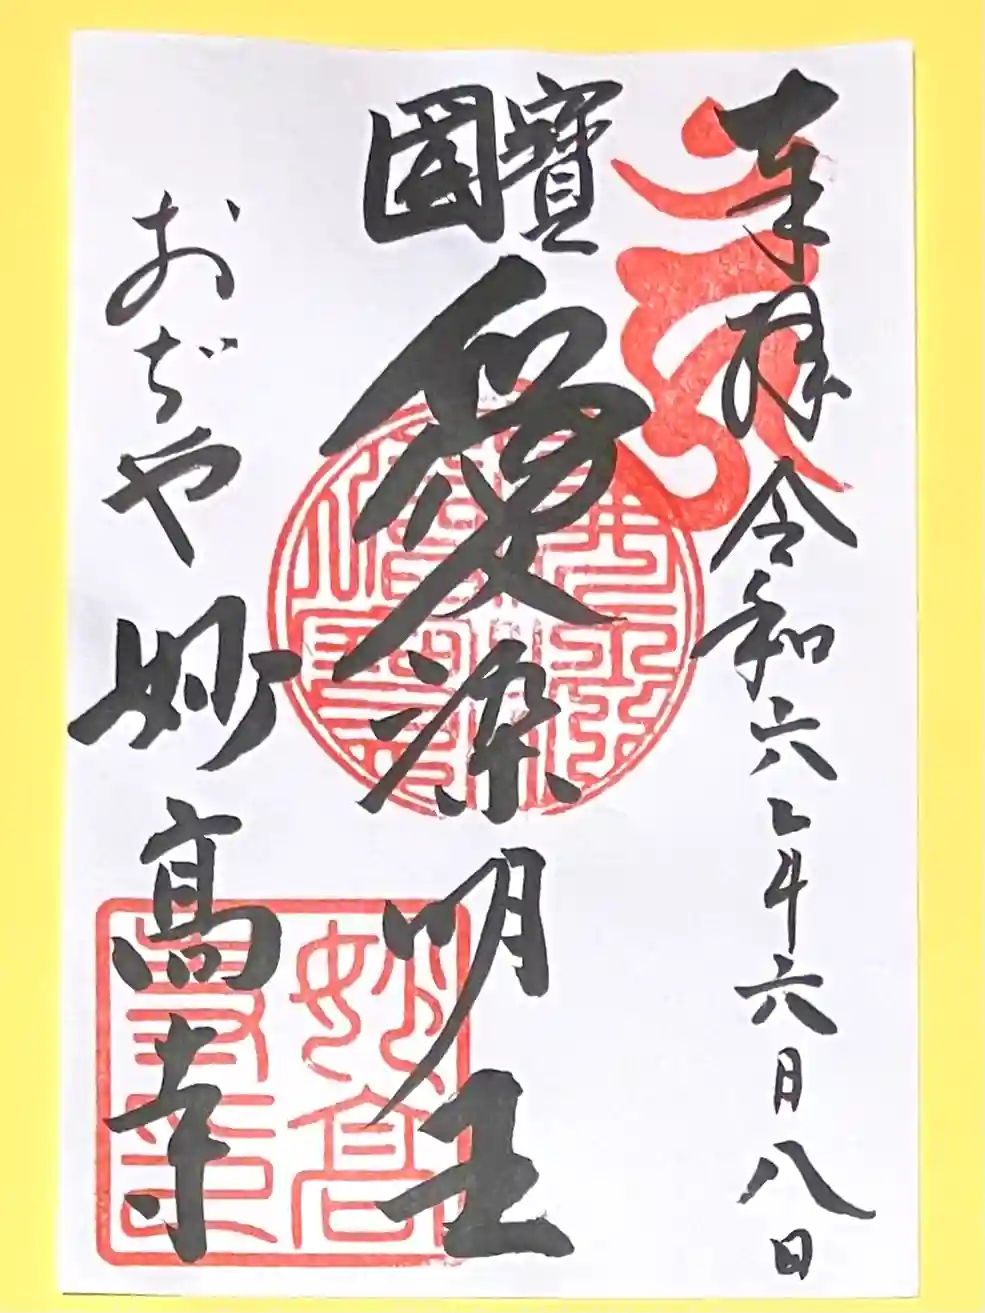 奉拝 令和六年六月八日
寶國
愛染明王
おぢや 妙高寺
妙高寺印